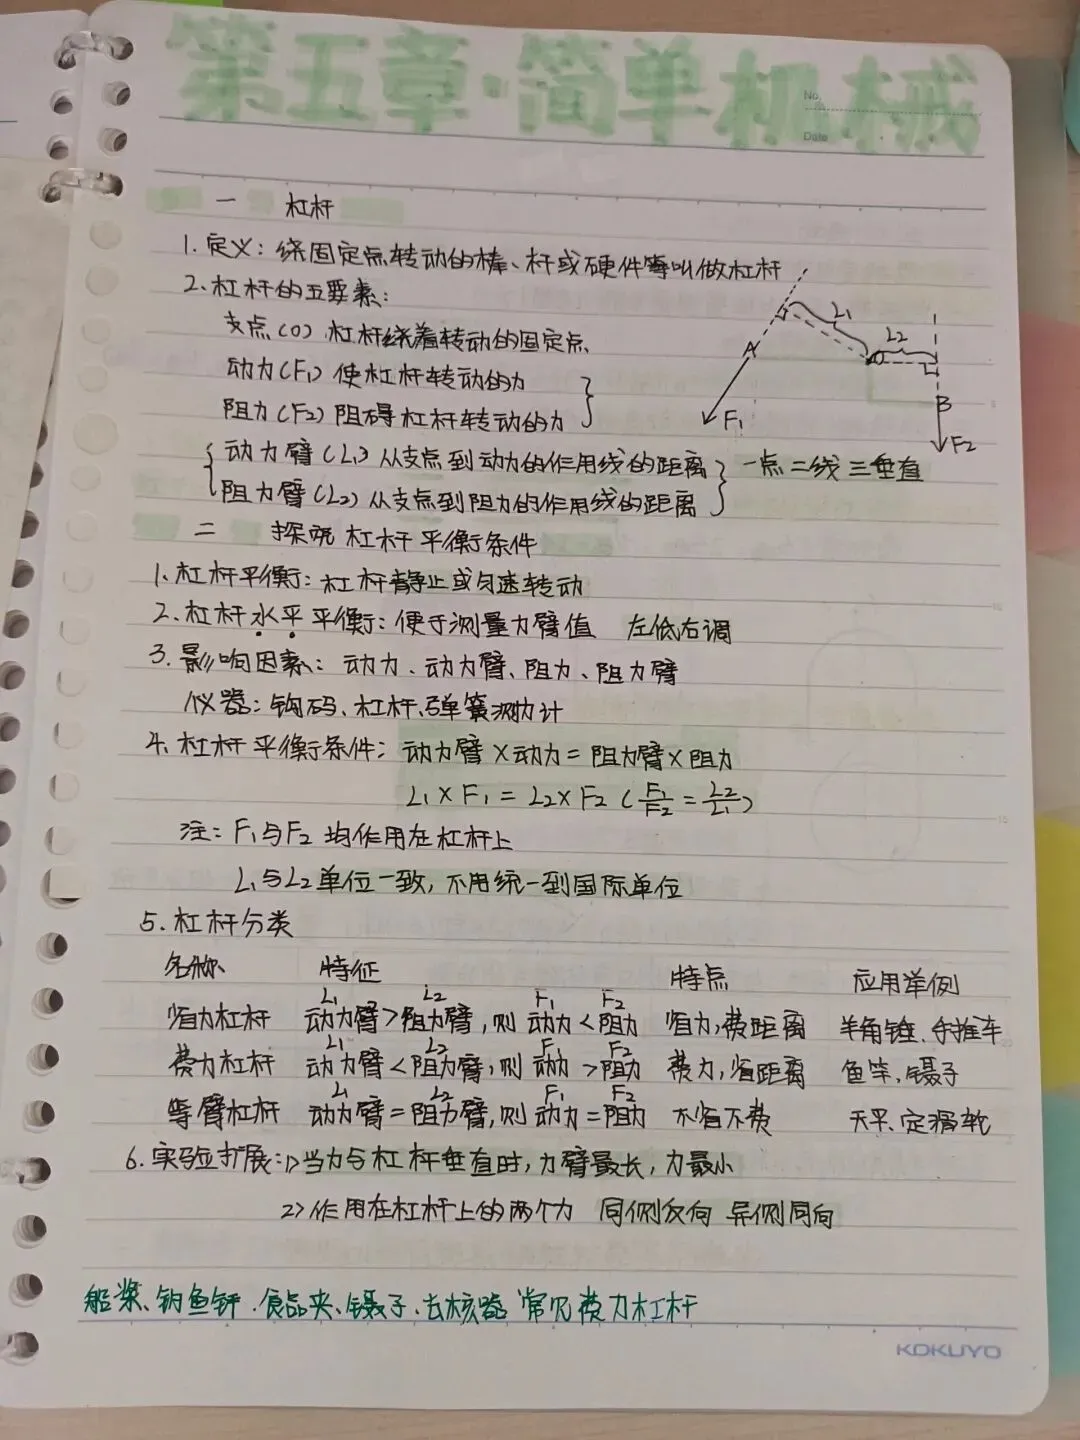 第五章·简单机械
No.
Date
一 杠杆
1. 定义：绕固定点转动的棒、杆或硬件等叫做杠杆
2. 杠杆的五要素：
支点(O) 杠杆绕着转动的固定点
动力(F₁) 使杠杆转动的力
阻力(F₂) 阻碍杠杆转动的力
L₁
L₂
A
B
F₁
F₂
动力臂(L₁) 从支点到动力的作用线的距离
阻力臂(L₂) 从支点到阻力的作用线的距离
一点二线三垂直
二 探究杠杆平衡条件
1. 杠杆平衡：杠杆静止或匀速转动
2. 杠杆水平平衡：便于测量力臂值 左低右调
3. 影响因素：动力、动力臂、阻力、阻力臂
仪器：钩码、杠杆、弹簧测力计
4. 杠杆平衡条件：动力臂×动力=阻力臂×阻力
L₁×F₁=L₂×F₂ (F₁/F₂=L₂/L₁)
注：F₁与F₂均作用在杠杆上
L₁与L₂单位一致，不用统一到国际单位
5. 杠杆分类
名称 特征 特点 应用举例
L₁ L₂ F₁ F₂
省力杠杆 动力臂>阻力臂，则动力<阻力 省力，费距离 羊角锤、手推车
L₁ L₂ F₁ F₂
费力杠杆 动力臂<阻力臂，则动力>阻力 费力，省距离 鱼竿、镊子
L₁ L₂ F₁ F₂
等臂杠杆 动力臂=阻力臂，则动力=阻力 不省不费 天平、定滑轮
6. 实验扩展：1>当力与杠杆垂直时，力臂最长，力最小
2>作用在杠杆上的两个力 同侧反向 异侧同向
船桨、钓鱼钎、食品夹、镊子、去核器 常见费力杠杆
KOKUYO